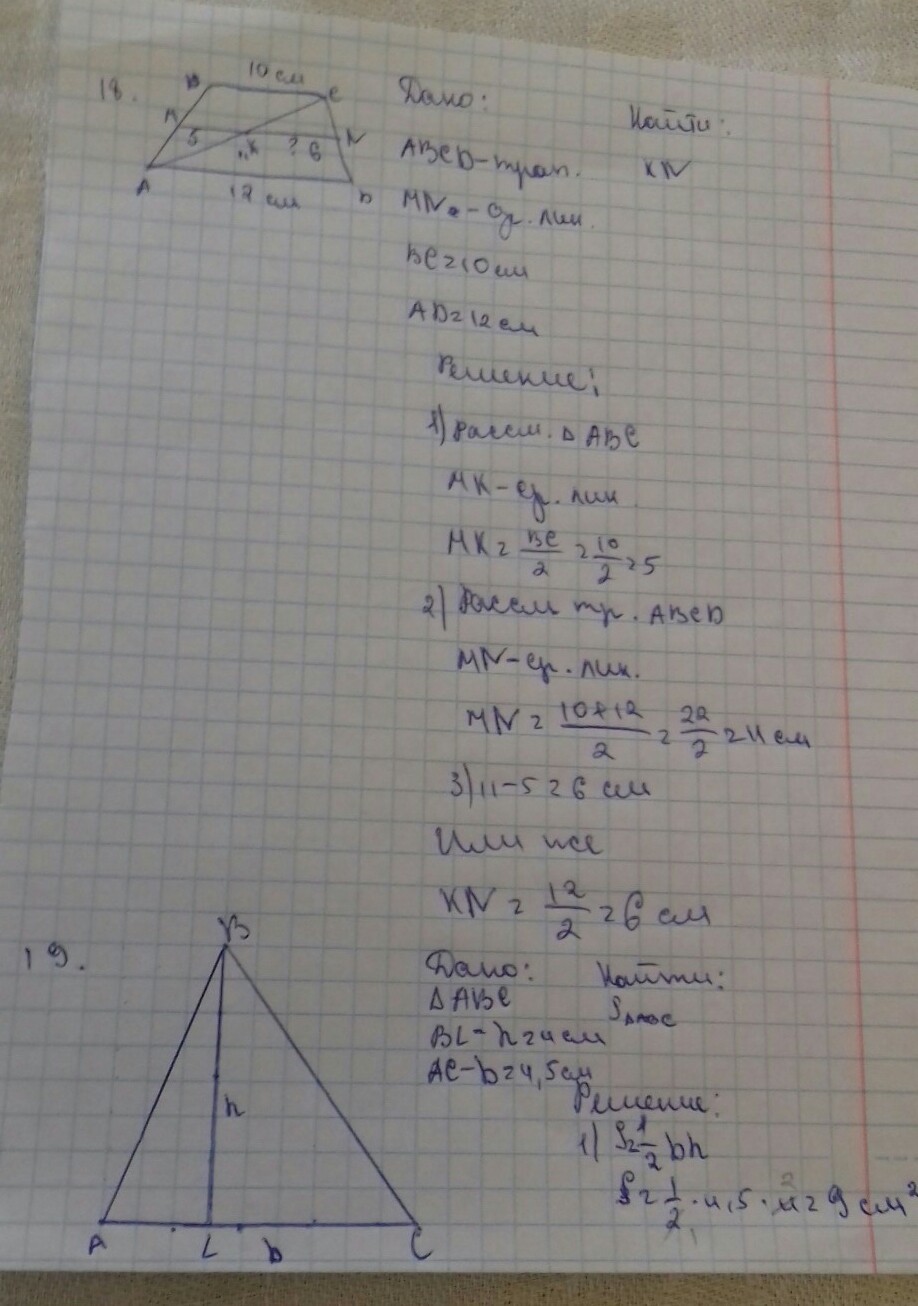 18.
10 см
B
C
M
5
K
? 6
N
A
12 см
D
Дано:
Найти:
ABCD-трап.
KN
MN - ср. лин.
BC=10 см
AD=12 см
Решение:
1) Рассм. Δ ABC
MK - ср. лин.
MK = BC/2 = 10/2 = 5
2) Рассм тр. ABCD
MN - ср. лин.
MN = 10+12/2 = 22/2 = 11 см
3) 11-5=6 см
Или же
KN = 12/2 = 6 см
19.
B
h
A
L
b
C
Дано:
Найти:
Δ ABC
S
BL - h=4см
AC - b=4,5см
Решение:
1) S=1/2 bh
S=1/2 · 4,5 · 4 2 = 9 см²